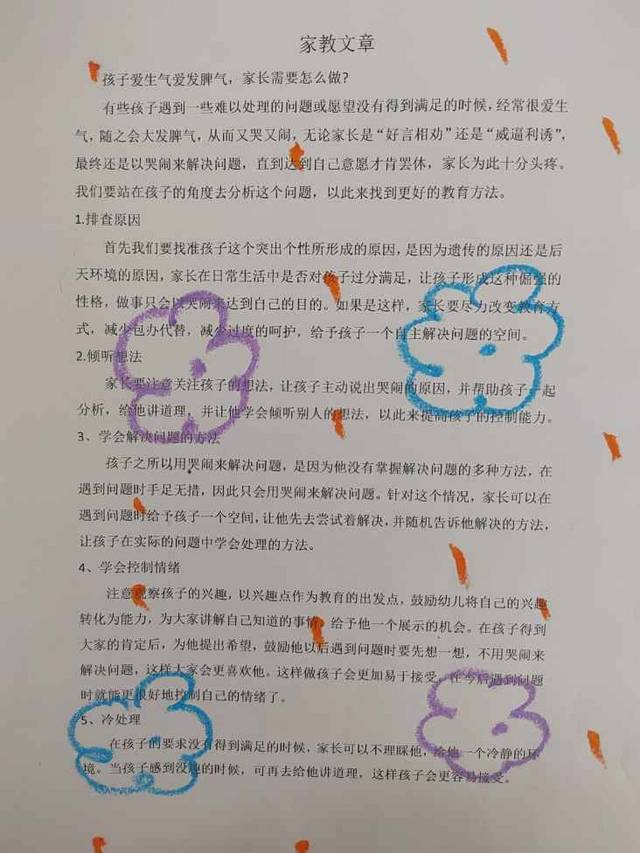 家教文章
孩子爱生气爱发脾气，家长需要怎么做?
有些孩子遇到一些难以处理的问题或愿望没有得到满足的时候，经常很爱生
气，随之会大发脾气，从而又哭又闹，无论家长是“好言相劝”还是“威逼利诱”，
最终还是以哭闹来解决问题，直到达到自己意愿才肯罢休，家长为此十分头疼。
我们要站在孩子的角度去分析这个问题，以此来找到更好的教育方法。
1.排查原因
首先我们要找准孩子这个突出个性所形成的原因，是因为遗传的原因还是后
天环境的原因，家长在日常生活中是否对孩子过分满足，让孩子形成这种倔强的
性格，做事只会以哭闹来达到自己的目的。如果是这样，家长要尽力改变教育方
式，减少包办代替，减少过度的呵护，给予孩子一个自主解决问题的空间。
2.倾听想法
家长要注意关注孩子的想法，让孩子主动说出哭闹的原因，并帮助孩子一起
分析，给他讲道理，并让他学会倾听别人的想法，以此来提高孩子的控制能力。
3、学会解决问题的方法
孩子之所以用哭闹来解决问题，是因为他没有掌握解决问题的多种方法，在
遇到问题时手足无措，因此只会用哭闹来解决问题。针对这个情况，家长可以在
遇到问题时给予孩子一个空间，让他先去尝试着解决，并随机告诉他解决的方法，
让孩子在实际的问题中学会处理的方法。
4、学会控制情绪
注意观察孩子的兴趣，以兴趣点作为教育的出发点，鼓励幼儿将自己的兴趣
转化为能力，为大家讲解自己知道的事情，给予他一个展示的机会。在孩子得到
大家的肯定后，为他提出希望，鼓励他以后遇到问题时要先想一想，不用哭闹来
解决问题，这样大家会更喜欢他。这样做孩子会更加易于接受，在今后遇到问题
时就能更很好地控制自己的情绪了。
5、冷处理
在孩子的要求没有得到满足的时候，家长可以不理睬他，给他一个冷静的环
境。当孩子感到没趣的时候，可再去给他讲道理，这样孩子会更容易接受。